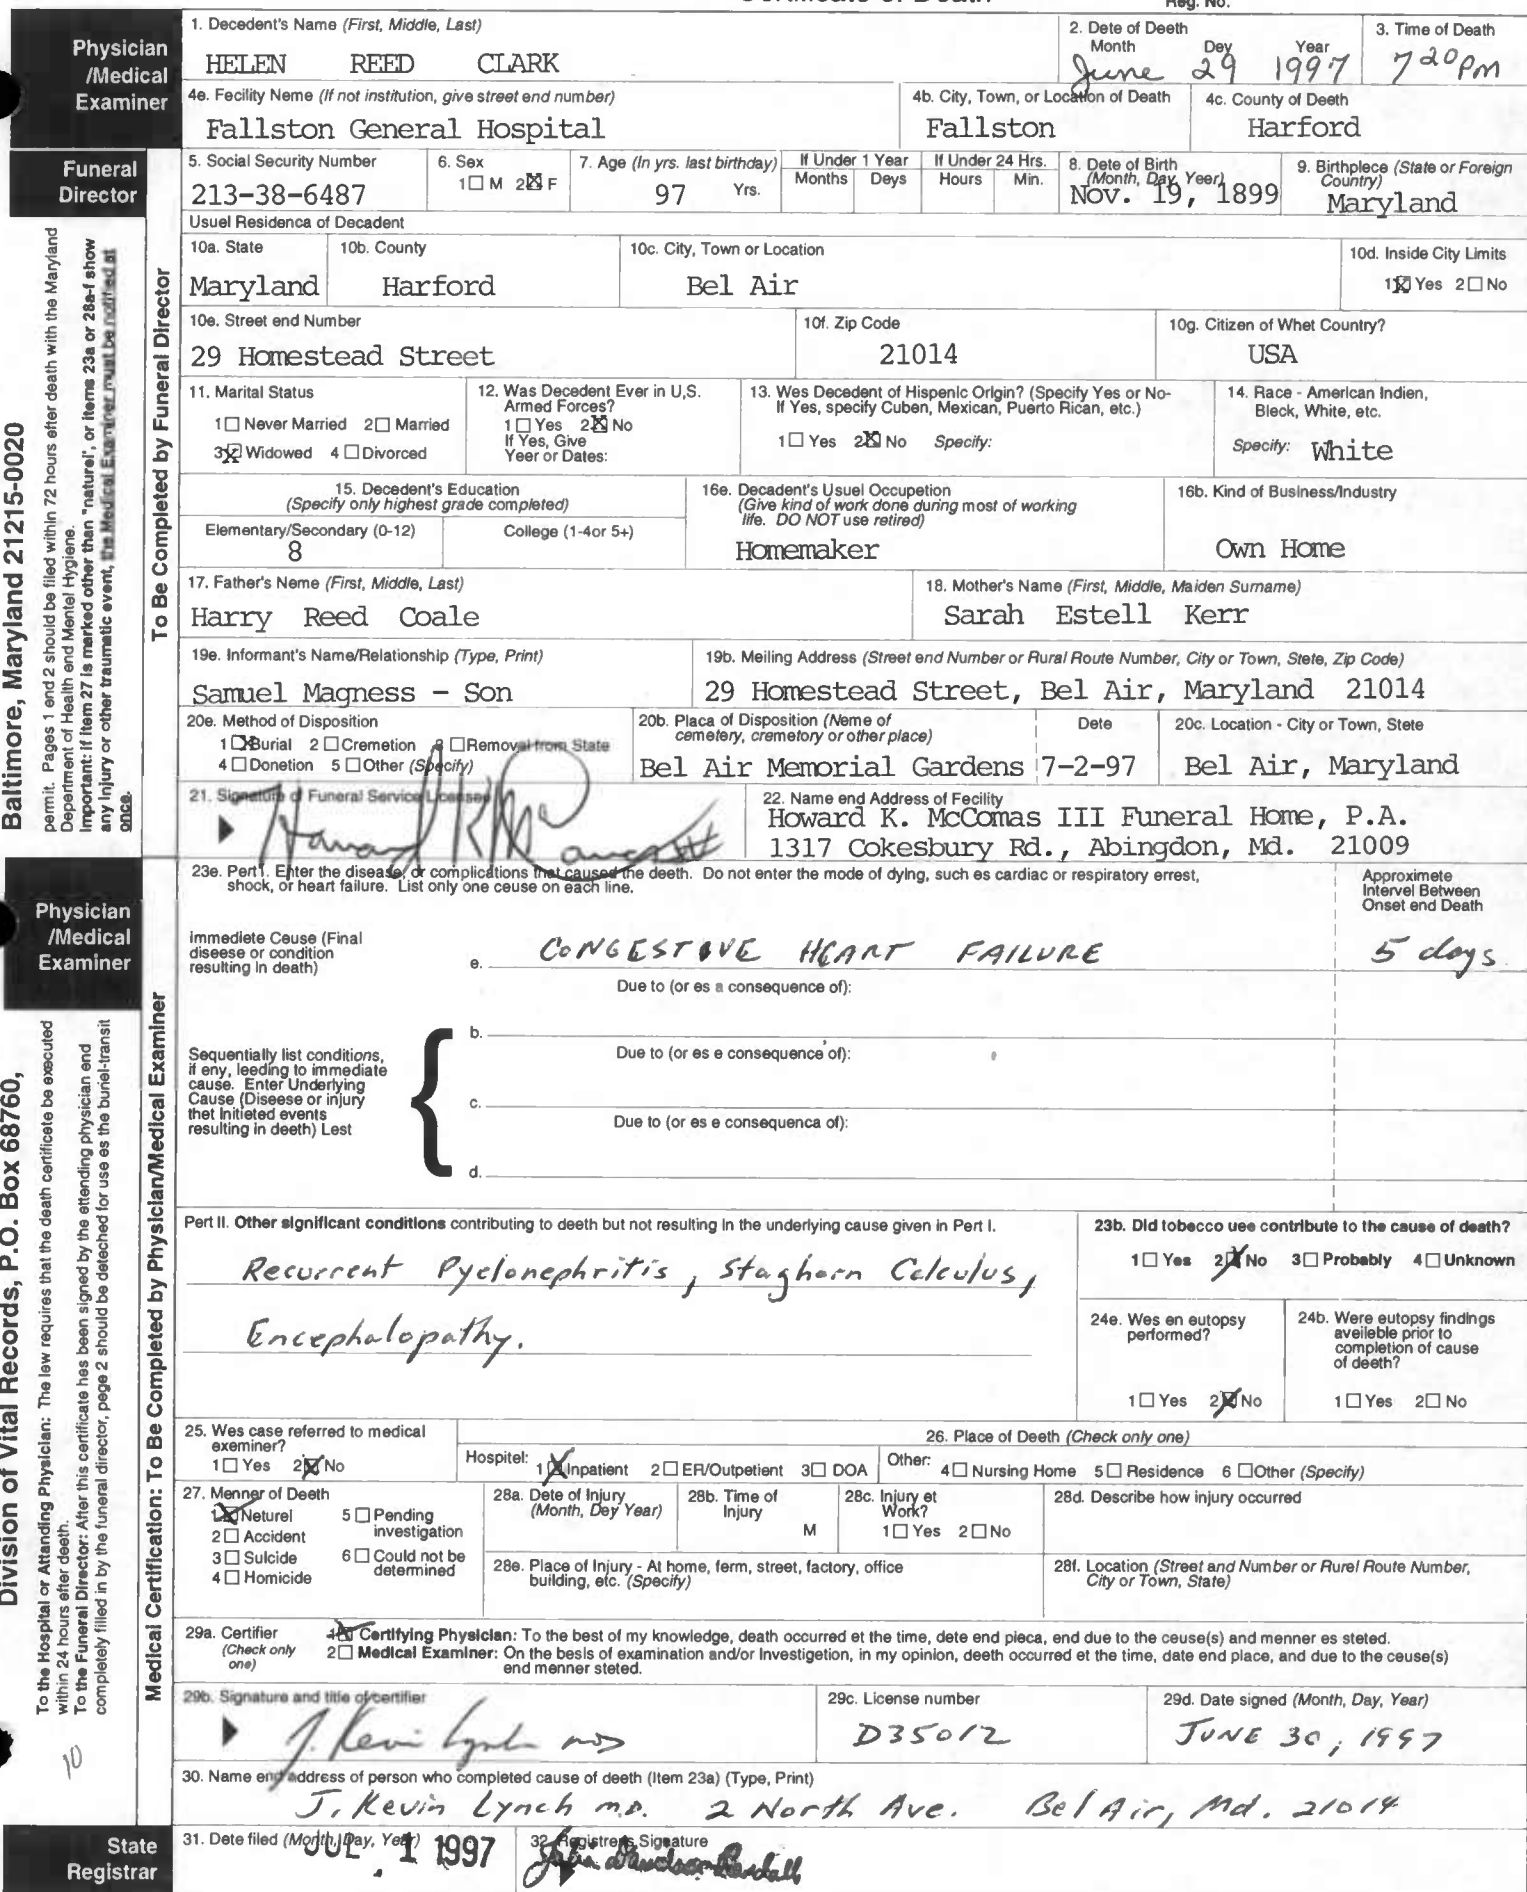 Certificate of Death
Reg. No.
Physician
/Medical
Examiner
1. Decedent's Name (First, Middle, Last)
HELEN REED CLARK
2. Dete of Deeth
Month Dey Year
June 29 1997
3. Time of Death
7 20 PM
4e. Fecility Name (If not institution, give street end number)
Fallston General Hospital
4b. City, Town, or Location of Death
Fallston
4c. County of Deeth
Harford
Funeral
Director
5. Social Security Number
213-38-6487
6. Sex
1☐ M 2☒ F
7. Age (In yrs. last birthday)
97 Yrs.
If Under 1 Year
Months Deys
If Under 24 Hrs.
Hours Min.
8. Dete of Birth
(Month, Day, Yeer)
Nov. 19, 1899
9. Birthplece (State or Foreign
Country)
Maryland
Usuel Residenca of Decadent
10a. State
Maryland
10b. County
Harford
10c. City, Town or Location
Bel Air
10d. Inside City Limits
1☒ Yes 2☐ No
10e. Street end Number
29 Homestead Street
10f. Zip Code
21014
10g. Citizen of Whet Country?
USA
11. Marital Status
1☐ Never Married 2☐ Married
3☒ Widowed 4☐ Divorced
12. Was Decedent Ever in U,S.
Armed Forces?
1☐ Yes 2☒ No
If Yes, Give
Yeer or Dates:
13. Wes Decedent of Hispenlc Orlgin? (Specify Yes or No-
If Yes, specify Cuben, Mexican, Puerto Rican, etc.)
1☐ Yes 2☒ No Specify:
14. Race - American Indien,
Bleck, White, etc.
Specify: White
15. Decedent's Education
(Specify only highest grade completed)
Elementary/Secondary (0-12)
8
College (1-4or 5+)
16e. Decadent's Usuel Occupetion
(Give kind of work done during most of working
life. DO NOT use retired)
Homemaker
16b. Kind of Business/Industry
Own Home
17. Father's Name (First, Middle, Last)
Harry Reed Coale
18. Mother's Name (First, Middle, Maiden Surname)
Sarah Estell Kerr
19e. Informant's Name/Relationship (Type, Print)
Samuel Magness - Son
19b. Meiling Address (Street end Number or Rural Route Number, City or Town, Stete, Zip Code)
29 Homestead Street, Bel Air, Maryland 21014
20e. Method of Disposition
1☒ Burial 2☐ Cremetion 3☐ Removal from State
4☐ Donetion 5☐ Other (Specify)
20b. Placa of Disposition (Neme of
cemetery, cremetory or other place)
Bel Air Memorial Gardens
Dete
7-2-97
20c. Location - City or Town, Stete
Bel Air, Maryland
21. Signature of Funeral Service Licensee
22. Name end Address of Fecility
Howard K. McComas III Funeral Home, P.A.
1317 Cokesbury Rd., Abingdon, Md. 21009
To Be Completed by Funeral Director
Baltimore, Maryland 21215-0020
permit. Pages 1 end 2 should be filed within 72 hours efter death with the Maryland
Depertment of Health end Mentel Hygiene.
Important: If item 27 is merked other than "naturel", or items 23a or 28a-f show
any Injury or other traumatic event, the Medical Examiner must be notified at
once.
Physician
/Medical
Examiner
23e. Pert I. Enter the disease, or complications that caused the deeth. Do not enter the mode of dying, such es cardiac or respiratory errest,
shock, or heart failure. List only one ceuse on each line.
Approximete
Intervel Between
Onset end Death
Immediete Ceuse (Final
diseese or condition
resulting In death)
e. CONGESTIVE HEART FAILURE
5 days
Due to (or es a consequence of):
b.
Due to (or es e consequence of):
Sequentially list conditions,
if eny, leeding to immediate
cause. Enter Underlying
Cause (Diseese or injury
thet Initieted events
resulting in deeth) Lest
c.
Due to (or es e consequenca of):
d.
Pert II. Other significant conditions contributing to deeth but not resulting In the underlying cause given in Pert I.
Recurrent Pyelonephritis, Staghorn Calculus,
Encephalopathy.
23b. Did tobacco uee contribute to the cause of death?
1☐ Yes 2☒ No 3☐ Probably 4☐ Unknown
24e. Wes en eutopsy
performed?
1☐ Yes 2☒ No
24b. Were eutopsy findings
aveileble prior to
completion of cause
of deeth?
1☐ Yes 2☐ No
25. Wes case referred to medical
exeminer?
1☐ Yes 2☒ No
26. Place of Deeth (Check only one)
Hospitel: 1☒ Inpatient 2☐ ER/Outpetient 3☐ DOA
Other: 4☐ Nursing Home 5☐ Residence 6 ☐Other (Specify)
27. Menner of Deeth
1☒ Neturel
2☐ Accident
3☐ Sulcide
4☐ Homicide
5☐ Pending
investigation
6☐ Could not be
determined
28a. Dete of Injury
(Month, Dey Year)
28b. Time of
Injury
M
28c. Injury et
Work?
1☐ Yes 2☐ No
28d. Describe how injury occurred
28e. Place of Injury - At home, ferm, street, factory, office
building, etc. (Specify)
28f. Location (Street and Number or Rurel Route Number,
City or Town, State)
29a. Certifier
(Check only
one)
1☒ Certifying Physician: To the best of my knowledge, death occurred et the time, dete end pleca, end due to the ceuse(s) and menner es steted.
2☐ Medical Examiner: On the besis of examination and/or Investigetion, in my opinion, deeth occurred et the time, date end place, and due to the ceuse(s)
end menner steted.
29b. Signature and title of certifier
J. Kevin Lynch MD
29c. License number
D35012
29d. Date signed (Month, Day, Year)
JUNE 30, 1997
30. Name end address of person who completed cause of deeth (Item 23a) (Type, Print)
J. Kevin Lynch M.D. 2 North Ave. Bel Air, Md. 21014
Medical Certification: To Be Completed by Physician/Medical Examiner
Division of Vital Records, P.O. Box 68760,
To the Hospital or Attanding Physician: The lew requires that the death certificete be executed
within 24 hours efter deeth.
To the Funeral Director: After this certificate hes been signed by the ettending physician end
completely filled in by the funeral director, pege 2 should be deteched for use es the buriel-transit
10
State
Registrar
31. Dete filed (Month, Day, Year)
JUL 1 1997
32. Registrer's Signature